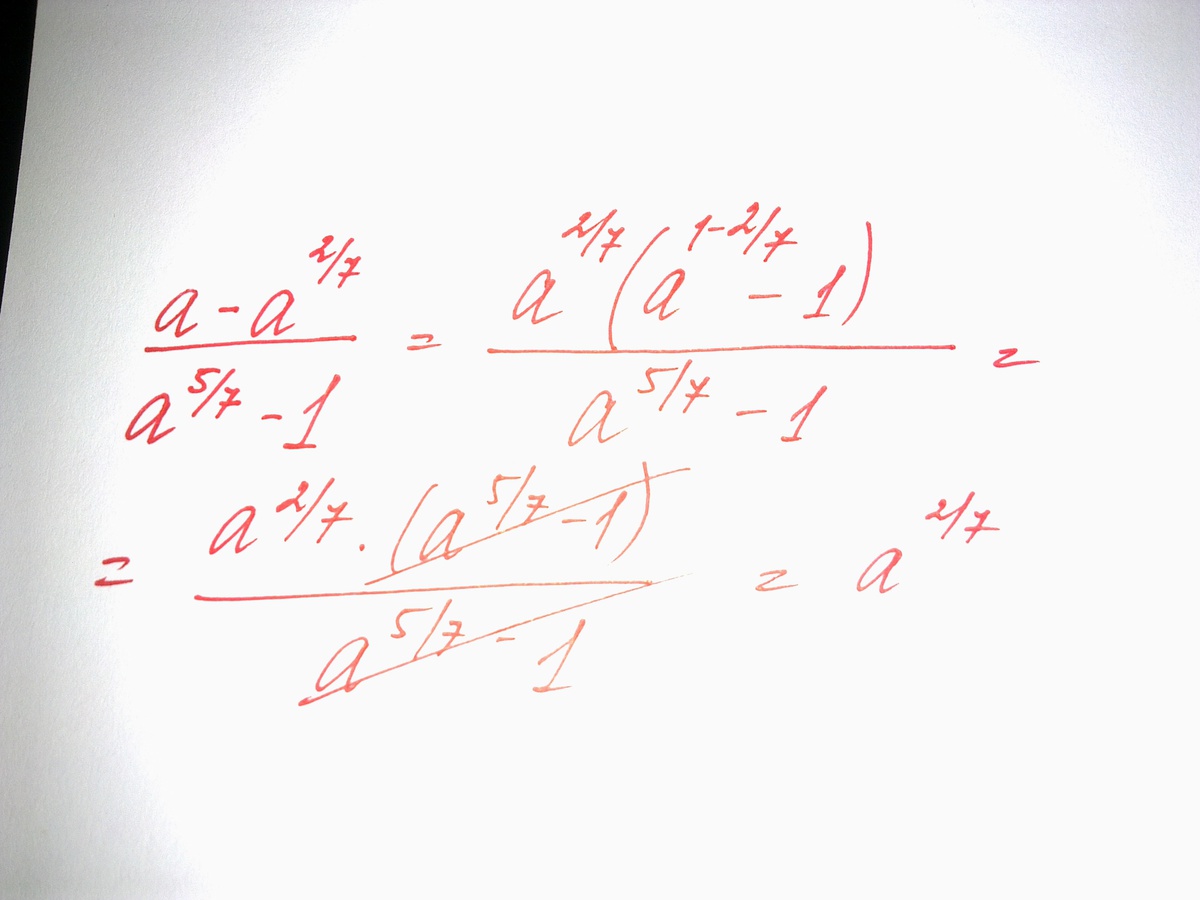 (a - a^(2/7))/(a^(5/7) - 1) = (a^(2/7)(a^(1-2/7) - 1))/(a^(5/7) - 1) =
= (a^(2/7) · (a^(5/7) - 1))/(a^(5/7) - 1) = a^(2/7)